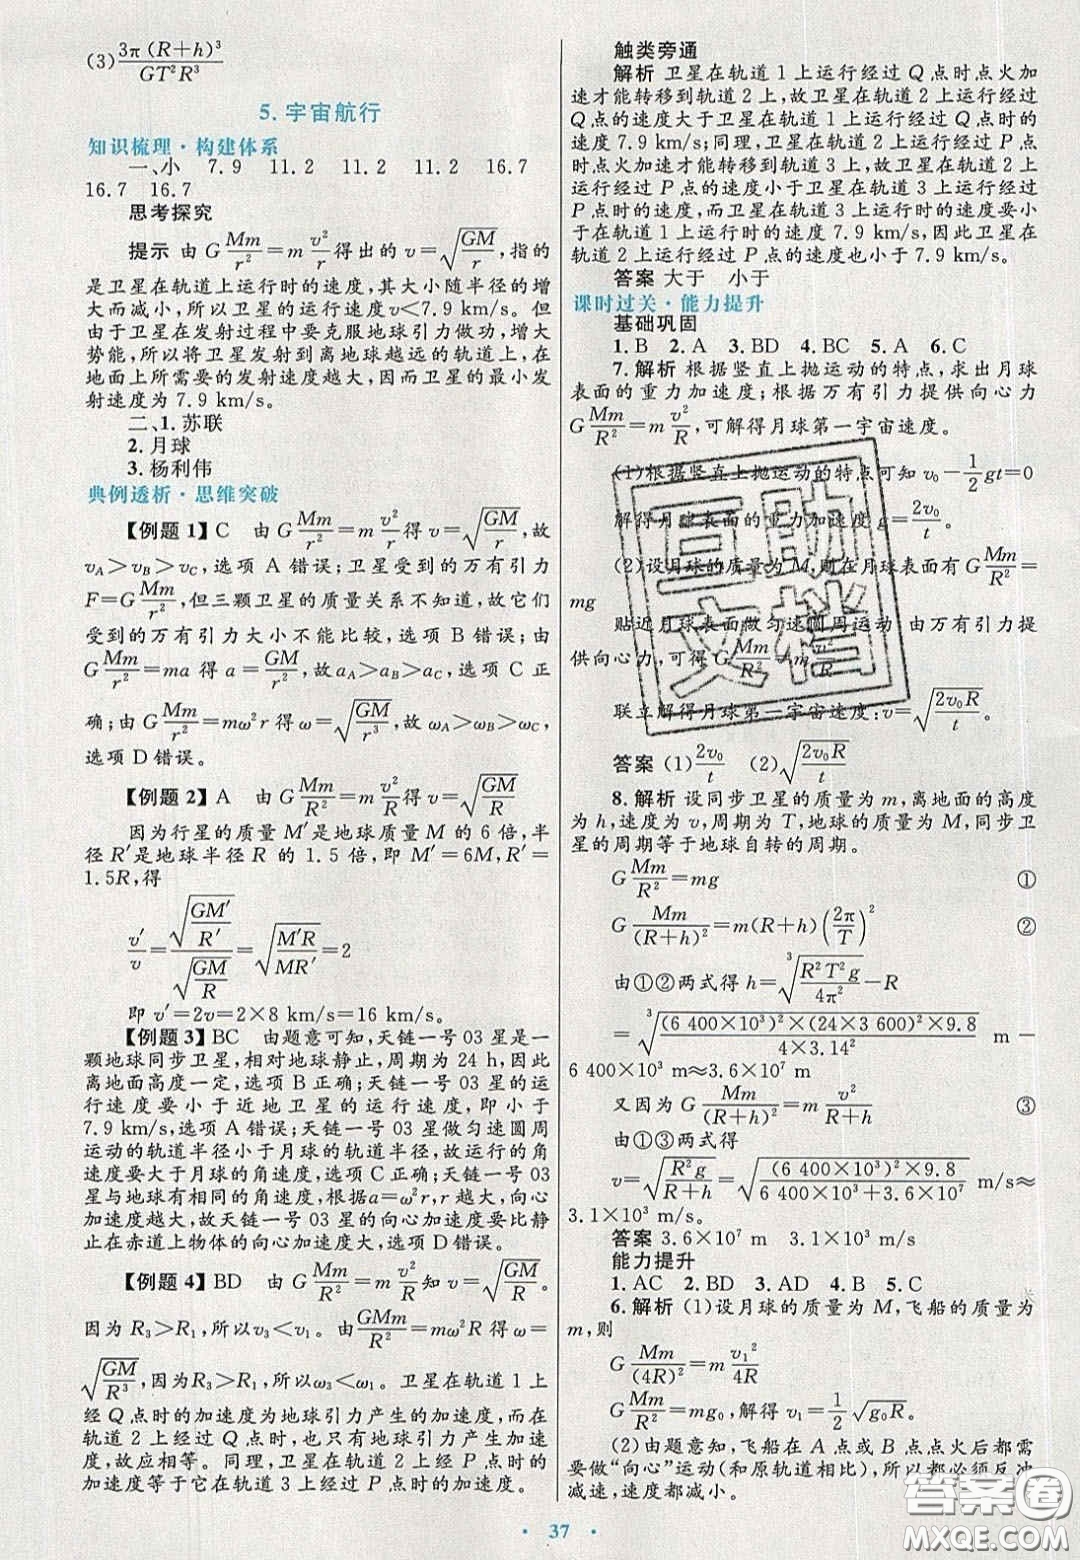 (3) 3π(R+h)³/GT²R³
5. 宇宙航行
知识梳理·构建体系
一、小 7.9 11.2 11.2 11.2 16.7
16.7 16.7
思考探究
提示 由 G Mm/r²=m v²/r 得出的 v=√(GM/r),指的
是卫星在轨道上运行时的速度,其大小随半径的增
大而减小,所以卫星的运行速度v<7.9 km/s。但
由于卫星在发射过程中要克服地球引力做功,增大
势能,所以将卫星发射到离地球越远的轨道上,在
地面上所需要的发射速度越大,因而卫星的最小发
射速度为 7.9 km/s。
二、1.苏联
2.月球
3.杨利伟
典例透析·思维突破
【例题 1】C 由 G Mm/r²=m v²/r 得 v=√(GM/r),故
vA>vB>vC,选项 A 错误;卫星受到的万有引力
F=G Mm/r²,但三颗卫星的质量关系不知道,故它们
受到的万有引力大小不能比较,选项 B 错误;由
G Mm/r²=ma 得 a=GM/r²,故 aA>aB>aC,选项 C 正
确;由 G Mm/r²=mω²r 得 ω=√(GM/r³),故 ωA>ωB>ωC,
选项 D 错误。
【例题 2】A 由 G Mm/R²=m v²/R 得 v=√(GM/R)
因为行星的质量 M′是地球质量 M 的 6 倍,半
径 R′是地球半径 R 的 1.5 倍,即 M′=6M,R′=
1.5R,得
v′/v=√(GM′/R′)/√(GM/R)=√(M′R/MR′)=2
即 v′=2v=2×8 km/s=16 km/s。
【例题 3】BC 由题意可知,天链一号 03 星是一
颗地球同步卫星,相对地球静止,周期为 24 h,因此
离地面高度一定,选项 B 正确;天链一号 03 星的运
行速度要小于近地卫星的运行速度,即小于
7.9 km/s,选项 A 错误;天链一号 03 星做匀速圆周
运动的轨道半径小于月球的轨道半径,故运行的角
速度要大于月球的角速度,选项 C 正确;天链一号 03
星与地球有相同的角速度,根据a=ω²r,r 越大,向心
加速度越大,故天链一号 03 星的向心加速度要比静
止在赤道上物体的向心加速度大,选项 D 错误。
【例题 4】BD 由 G Mm/R²=m v²/R 知 v=√(GM/R)。
因为 R₃>R₁,所以v₃<v₁。由 GMm/R²=mω²R 得 ω=
√(GM/R³),因为 R₃>R₁,所以ω₃<ω₁。卫星在轨道 1 上
经 Q 点时的加速度为地球引力产生的加速度,而在
轨道 2 上经过 Q 点时,也只有地球引力产生加速
度,故应相等。同理,卫星在轨道 2 上经 P 点时的
加速度等于它在轨道 3 上经过 P 点时的加速度。
触类旁通
解析 卫星在轨道 1 上运行经过 Q 点时点火加
速才能转移到轨道 2 上,故卫星在轨道 2 上运行经过
Q 点的速度大于卫星在轨道 1 上运行经过 Q 点时的
速度;同理,卫星在轨道 2 上运行经过 P 点
时点火加速才能转移到轨道 3 上,故卫星在轨道 2 上
运行经过 P 点的速度小于卫星在轨道 3 上运行经过
P 点时的速度,而卫星在轨道 3 上运行时的速度要小
于在轨道 1 上运行时的速度 7.9 km/s,因此卫星在
轨道 2 上运行经过 P 点的速度也小于 7.9 km/s。
答案 大于 小于
课时过关·能力提升
基础巩固
1. B 2. A 3. BD 4. BC 5. A 6. C
7.解析 根据竖直上抛运动的特点,求出月球
表面的重力加速度;根据万有引力提供向心力
G Mm/R²=m v²/R,可解得月球第一宇宙速度。
(1)根据竖直上抛运动的特点可知 v₀-½gt=0
解得月球表面的重力加速度 g=2v₀/t。
(2)设月球的质量为 M,则在月球表面有 G Mm/R²=
mg
贴近月球表面做匀速圆周运动,由万有引力提
供向心力,可得 G Mm/R²=m v²/R
联立解得月球第一宇宙速度:v=√(2v₀R/t)。
答案 (1) 2v₀/t (2) √(2v₀R/t)
8.解析 设同步卫星的质量为 m,离地面的高度
为 h,速度为 v,周期为 T,地球的质量为 M,同步卫
星的周期等于地球自转的周期。
G Mm/R²=mg ①
G Mm/(R+h)²=m(R+h)(2π/T)² ②
由①②两式得 h=∛(R²T²g/4π²)-R
=∛((6 400×10³)²×(24×3 600)²×9.8/4×3.14²) m -
6 400×10³ m≈3.6×10⁷ m
又因为 G Mm/(R+h)²=m v²/R+h ③
由①③两式得
v=√(R²g/R+h)=√((6 400×10³)²×9.8/6 400×10³+3.6×10⁷) m/s≈
3.1×10³ m/s。
答案 3.6×10⁷ m 3.1×10³ m/s
能力提升
1. AC 2. BD 3. AD 4. B 5. C
6.解析 (1)设月球的质量为 M,飞船的质量为
m,则
G Mm/(4R)²=m v₁²/4R
G Mm/R²=mg₀,解得 v₁=½√(g₀R)。
(2)由题意知,飞船在 A 点或 B 点点火后都需
要做“向心”运动(和原轨道相比),所以都必须反冲
减速,速度都减小。
37
互助文档
答案圈
MXQE.COM